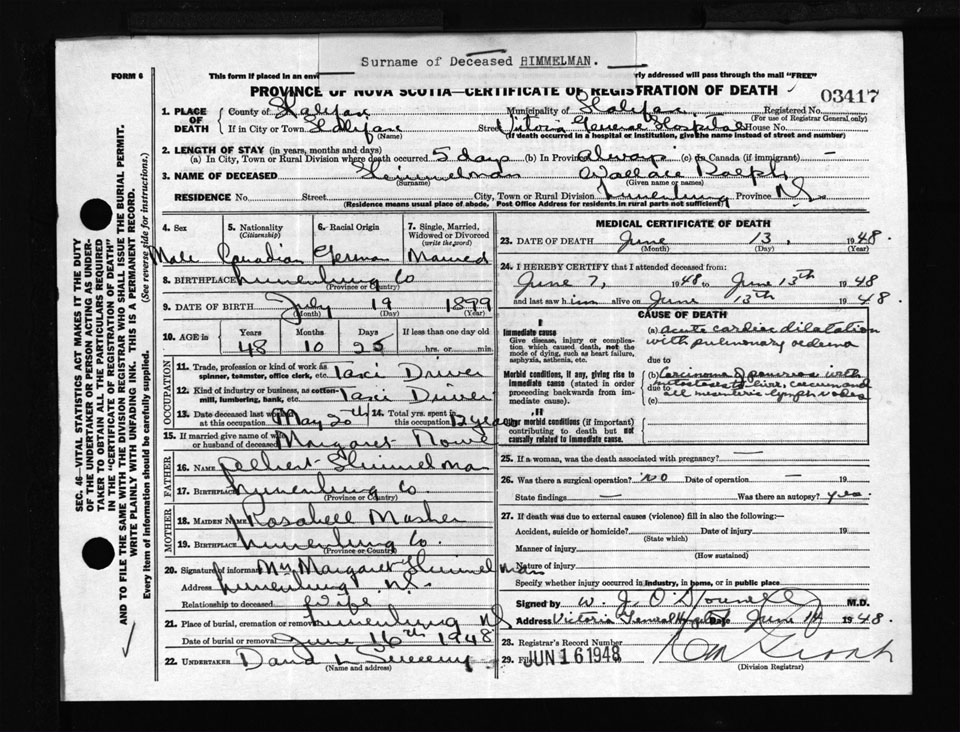 Surname of Deceased HIMMELMAN.
FORM 6
This form if placed in an env rly addressed will pass through the mail "FREE"
PROVINCE OF NOVA SCOTIA—CERTIFICATE OF REGISTRATION OF DEATH
03417
1. PLACE OF DEATH
County of Halifax Municipality of Halifax Registered No.
(For use of Registrar General only)
If in City or Town Halifax Street Victoria General Hospital House No.
(Name) (If death occurred in a hospital or institution, give the name instead of street and number)
2. LENGTH OF STAY (in years, months and days)
(a) In City, Town or Rural Division where death occurred 5 days (b) In Province always (c) In Canada (if immigrant) —
3. NAME OF DECEASED Himmelman Wallace Ralph
(Surname) (Given name or names)
RESIDENCE No. Street City, Town or Rural Division Lunenburg Province N.S.
(Residence means usual place of abode, Post Office Address for residents in rural parts not sufficient)
4. Sex 5. Nationality (Citizenship) 6. Racial Origin 7. Single, Married, Widowed or Divorced (write the word)
Male Canadian German Married
8. BIRTHPLACE Lunenburg Co
(Province or Country)
9. DATE OF BIRTH July 19 1899
(Month) (Day) (Year)
10. AGE is Years Months Days If less than one day old
48 10 25 hrs. or min.
OCCUPATION
11. Trade, profession or kind of work as spinner, teamster, office clerk, etc. Taxi Driver
12. Kind of industry or business, as cotton-mill, lumbering, bank, etc. Taxi Driver
13. Date deceased last worked at this occupation May 20th 14. Total yrs. spent in this occupation 12 years
15. If married give name of wife or husband of deceased Margaret
FATHER
16. NAME Himmelman
17. Birthplace Lunenburg Co
(Province or Country)
MOTHER
18. MAIDEN NAME Rosabell Mosher
19. BIRTHPLACE Lunenburg Co.
(Province or Country)
20. Signature of informant Mrs Margaret Himmelman
Address Lunenburg N.S.
Relationship to deceased Wife
21. Place of burial, cremation or removal Lunenburg NS
Date of burial or removal June 16th 1948
22. UNDERTAKER David
(Name and address)
MEDICAL CERTIFICATE OF DEATH
23. DATE OF DEATH June 13, 1948.
(Month) (Day) (Year)
24. I HEREBY CERTIFY that I attended deceased from:
June 7, 1948 to June 13th 1948
and last saw him alive on June 13th 1948.
CAUSE OF DEATH
I
Immediate cause
Give disease, injury or complication which caused death, not the mode of dying, such as heart failure, asphyxia, asthenia, etc.
(a) acute cardiac dilatation
with pulmonary oedema
due to
Morbid conditions, if any, giving rise to immediate cause (stated in order proceeding backwards from immediate cause).
(b) Carcinoma of pancreas with
due to metastases to liver, caecum and
(c) all mesenteric lymph nodes
II
Other morbid conditions (if important) contributing to death but not causally related to immediate cause.
25. If a woman, was the death associated with pregnancy? —
26. Was there a surgical operation? No Date of operation — 19
State findings — Was there an autopsy? yes.
27. If death was due to external causes (violence) fill in also the following:—
Accident, suicide or homicide? Date of injury 19
(State which)
Manner of injury
(How sustained)
Nature of injury
Specify whether injury occurred in industry, in home, or in public place
Signed by W. J. O'Donnell M.D.
Address Victoria General Hospital Date June 14 1948.
28. Registrar's Record Number
29. Filed JUN 16 1948
(Division Registrar)
SEC. 46—VITAL STATISTICS ACT MAKES IT THE DUTY
OF THE UNDERTAKER OR PERSON ACTING AS UNDER-
TAKER TO OBTAIN ALL THE PARTICULARS REQUIRED
IN THE "CERTIFICATE OF REGISTRATION OF DEATH"
AND TO FILE THE SAME WITH THE DIVISION REGISTRAR WHO SHALL ISSUE THE BURIAL PERMIT.
WRITE PLAINLY WITH UNFADING INK. THIS IS A PERMANENT RECORD.
Every item of information should be carefully supplied. (See reverse side for instructions.)